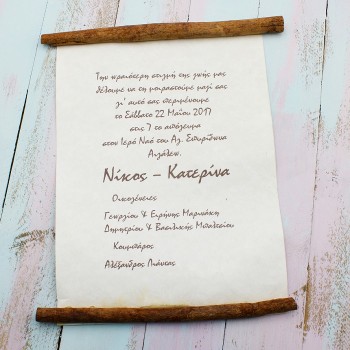 Την ωραιότερη στιγμή της ζωής μας
θέλουμε να τη μοιραστούμε μαζί σας
γι' αυτό σας περιμένουμε
το Σάββατο 22 Μαΐου 2017
στις 7 το απόγευμα
στον Ιερό Ναό του Αγ. Σπυρίδωνα
Αιγάλεω.
Νίκος – Κατερίνα
Οικογένειες
Γεωργίου & Ειρήνης Μαρινάκη
Δημητρίου & Βασιλικής Μπαλταίου
Κουμπάρος
Αλέξανδρος Λιάντας